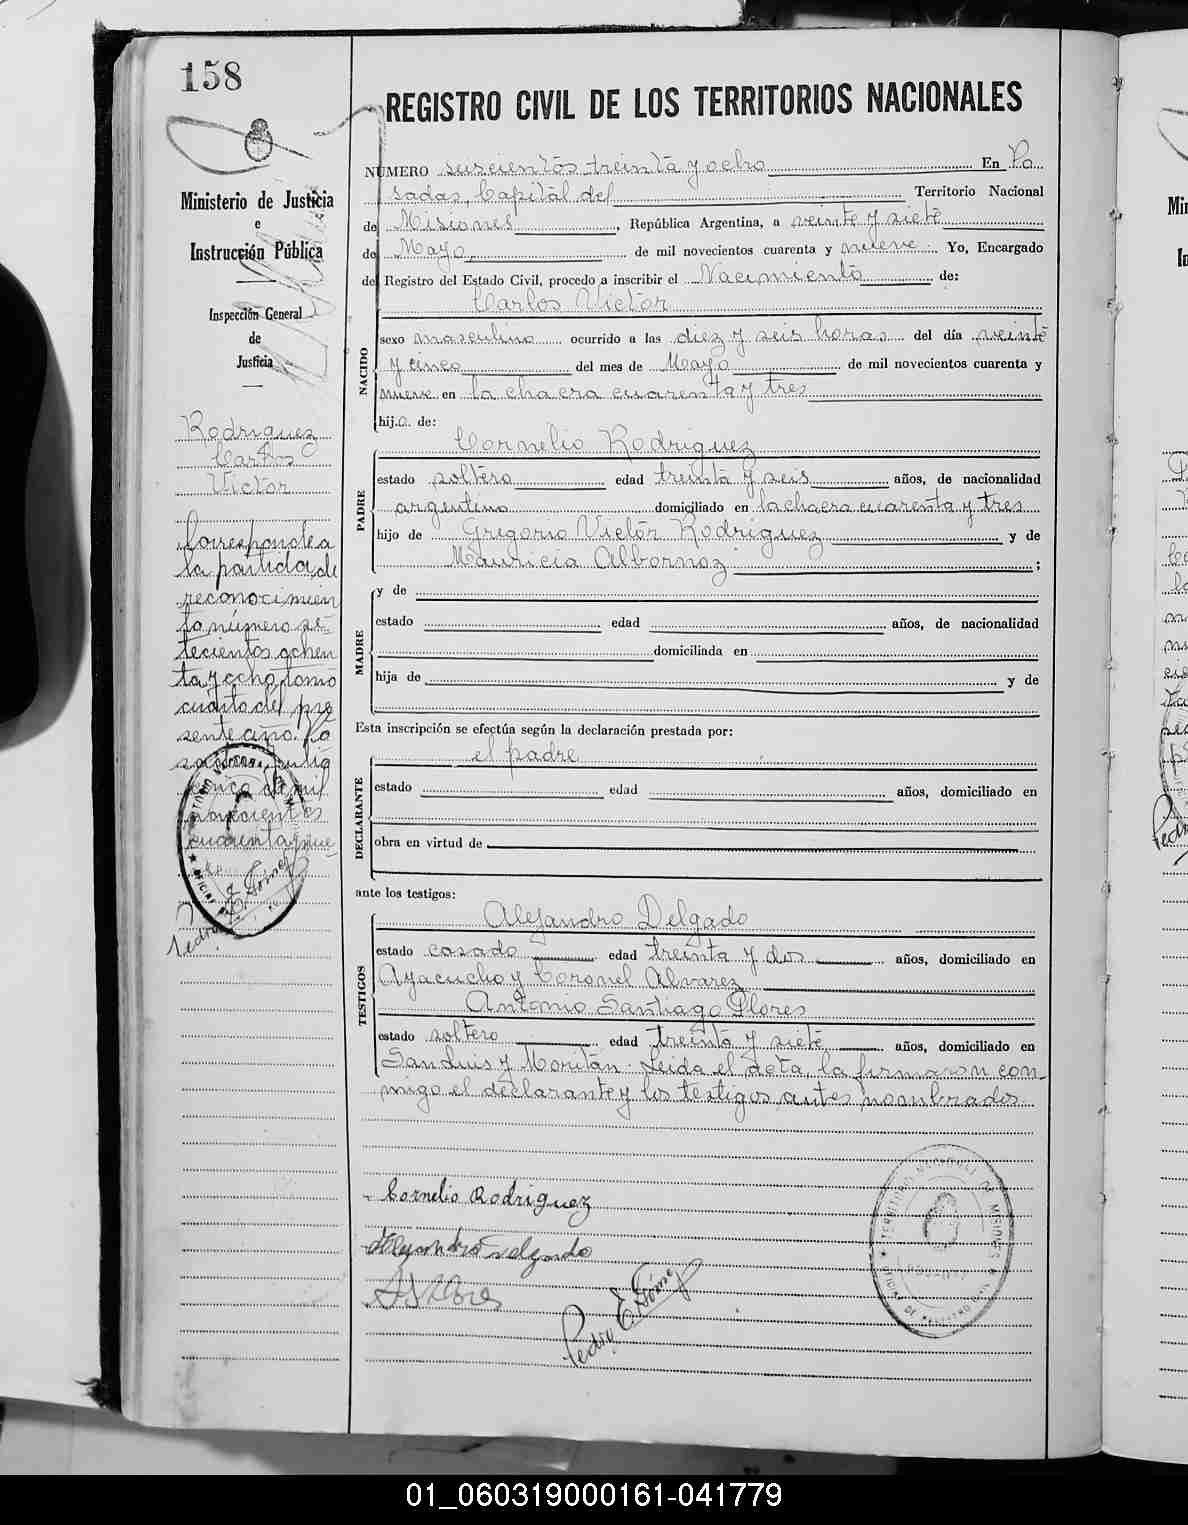 158
REGISTRO CIVIL DE LOS TERRITORIOS NACIONALES
Ministerio de Justicia
e
Instrucción Pública
Inspección General
de
Justicia
Rodriguez
Carlos
Victor
Corresponde a
la partida de
reconocimien
to número se-
tecientos ochen
ta y ocho, tomo
cuarto del pre
sente año. Po
sadas, julio
once de mil
novecientos
cuarenta y nue
Pedro E. Gómez
NUMERO seiscientos treinta y ocho En Po
sadas, Capital del Territorio Nacional
de Misiones, República Argentina, a veinte y siete
de Mayo, de mil novecientos cuarenta y nueve. Yo, Encargado
del Registro del Estado Civil, procedo a inscribir el Nacimiento de:
Carlos Victor
NACIDO
sexo masculino ocurrido a las diez y seis horas del día veinte
y cinco del mes de Mayo de mil novecientos cuarenta y
nueve en la chacra cuarenta y tres
hijo de:
Cornelio Rodriguez
PADRE
estado soltero edad treinta y seis años, de nacionalidad
argentino domiciliado en la chacra cuarenta y tres
hijo de Gregorio Victor Rodriguez y de
Mauricia Albornoz ;
MADRE
y de
estado edad años, de nacionalidad
domiciliada en
hija de y de
Esta inscripción se efectúa según la declaración prestada por:
el padre
DECLARANTE
estado edad años, domiciliado en
obra en virtud de
ante los testigos:
TESTIGOS
Alejandro Delgado
estado casado edad treinta y dos años, domiciliado en
Ayacucho y Coronel Alvarez
Antonio Santiago Flores
estado soltero edad treinta y siete años, domiciliado en
San Luis y Moritán. Leida el acta, la firmaron con-
migo el declarante y los testigos antes nombrados.
Cornelio Rodriguez
Alejandro Delgado
A S Flores
Pedro E. Gómez
TERRITORIO NACIONAL DE MISIONES
POSADAS
OFICINA DE REGISTRO CIVIL
01_060319000161-041779